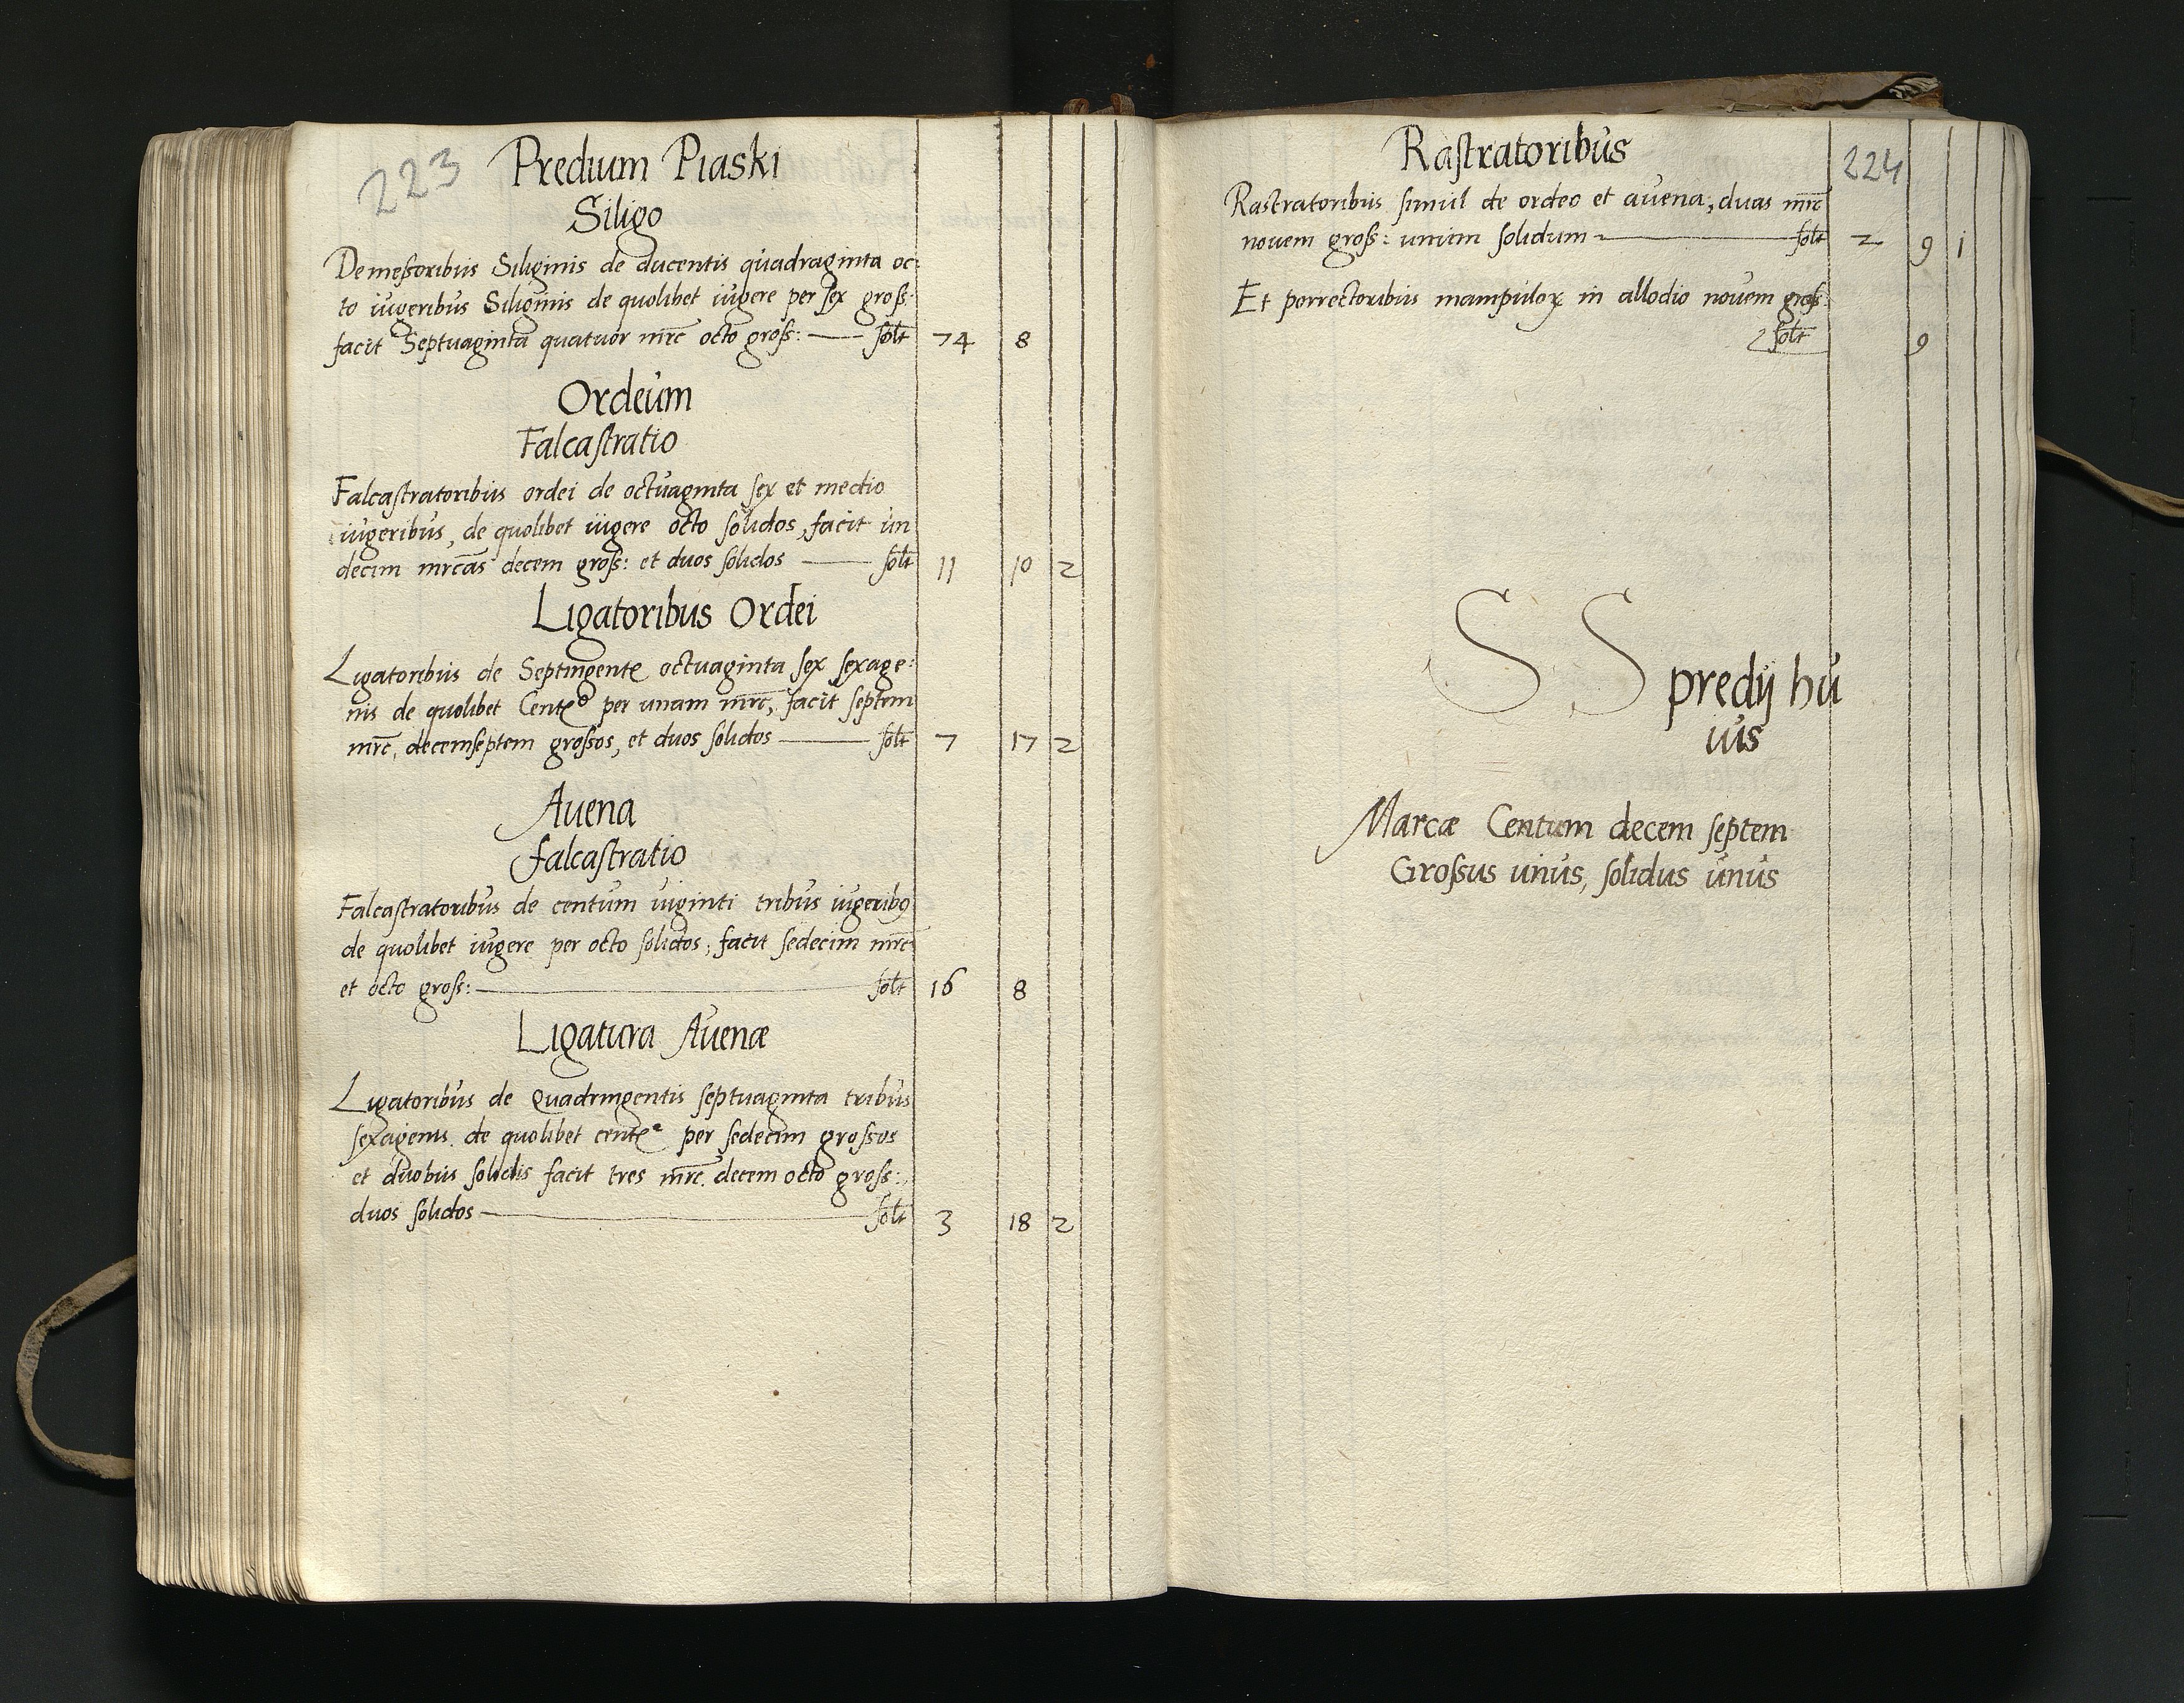 223
Predium Piaski
Siligo
Demeßoribus Siliginis de ducentis quadraginta oc:
to iugeribus Siliginis de quolibet iugere per sex groß:
facit Septuaginta quatuor mrc octo groß: — solt 74 8
Ordeum
Falcastratio
Falcastratoribus ordei de octuaginta sex et medio
iugeribus, de quolibet iugere octo solidos, facit un
decim mrcas decem groß: et duos solidos — solt 11 10 2
Ligatoribus Ordei
Ligatoribus de Septingentis octuaginta sex sexage:
nis de quolibet Cent° per unam mrc, facit septem
mrc, decemseptem großos, et duos solidos — solt 7 17 2
Auena
falcastratio
Falcastratoribus de centum uiginti tribus iugeribus
de quolibet iugere per octo solidos, facit sedecim mrc
et octo groß: — solt 16 8
Ligatura Auenæ
Ligatoribus de Quadringentis septuaginta tribus
sexagenis. de quolibet cent° per sedecim grossos
et duobus solidis facit tres mrc. decem octo groß:,
duos solidos — solt 3 18 2
224
Rastratoribus
Rastratoribus simul de ordeo et auena, duas mrc
nouem groß: unum solidum — solt 2 9 1
Et porrectoribus manipulor in allodio nouem groß:
solt 9
S S predij hu
ius
Marcæ Centum decem septem
Großus unus, solidus unus